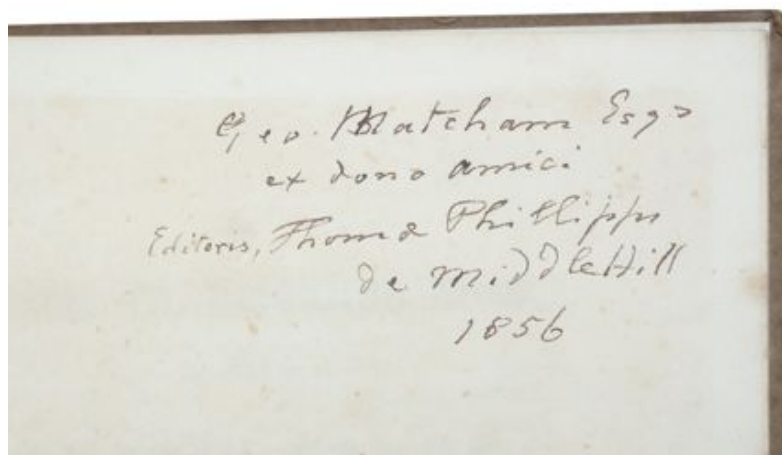 Geo. Matcham Esqr
ex dono amici
Editoris, Thomæ Phillipps
de MiddleHill
1856